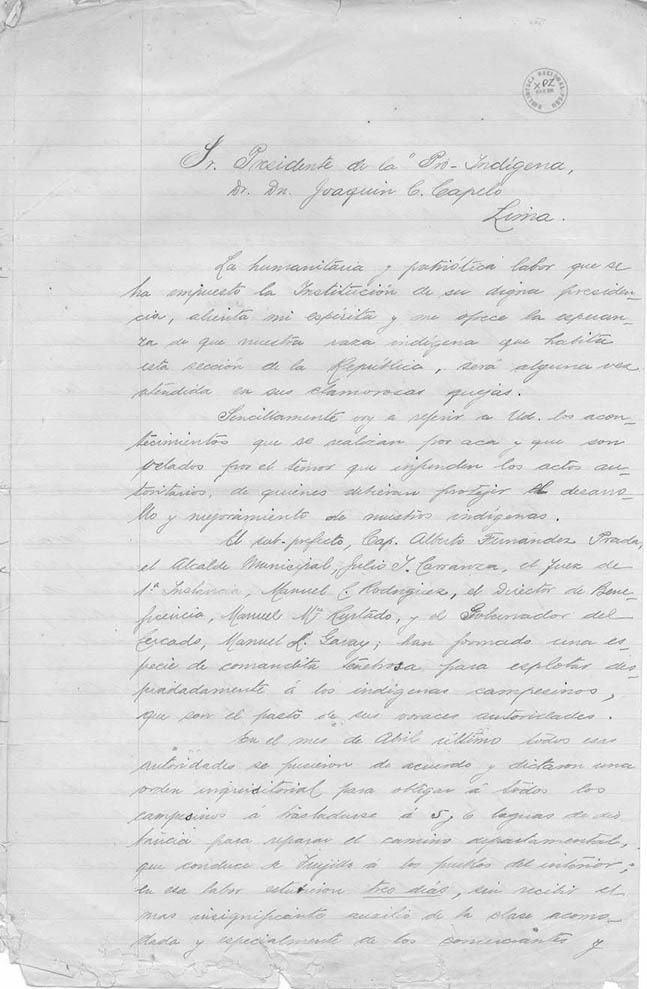 BIBLIOTECA NACIONAL PERU
Sr. Presidente de la "Pro-Indígena,
Dr. Dn. Joaquin C. Capelo
Lima.
La humanitaria y patriótica labor que se
ha impuesto la Institución de su digna presiden-
cia, alienta mi espíritu y me ofrece la esperan-
za de que nuestra raza indígena que habita
esta sección de la República, será alguna vez
atendida en sus clamorosas quejas.
Sencillamente voy a referir a Ud. los acon-
tecimientos que se realizan por aca y que son
velados por el temor que infunden los actos au-
toritarios, de quienes debieran protejer el desarro-
llo y mejoramiento de nuestros indígenas.
El sub-prefecto, Cap. Alberto Fernández Prada,
el Alcalde Municipal, Julio T. Carranza, el Juez de
1ª Instancia, Manuel C. Rodríguez, el Director de Bene-
ficencia, Manuel Mª Hurtado, y el Gobernador del
Cercado, Manuel R. Garay; han formado una es-
pecie de comandita tenebrosa para esplotar des-
piadadamente á los indígenas campesinos,
que son el pasto de sus voraces autoridades.
En el mes de Abril último todos esas
autoridades se pusieron de acuerdo y dictaron una
orden inquisitorial para obligar á todos los
campesinos á trasladarse á 5, 6 leguas de dis-
tancia para reparar el camino departamental,
que conduce de Trujillo á los pueblos del interior;
en esa labor estuvieron tres días, sin recibir el
mas insignificante auxilio de la clase acomo-
dada y especialmente de los comerciantes y